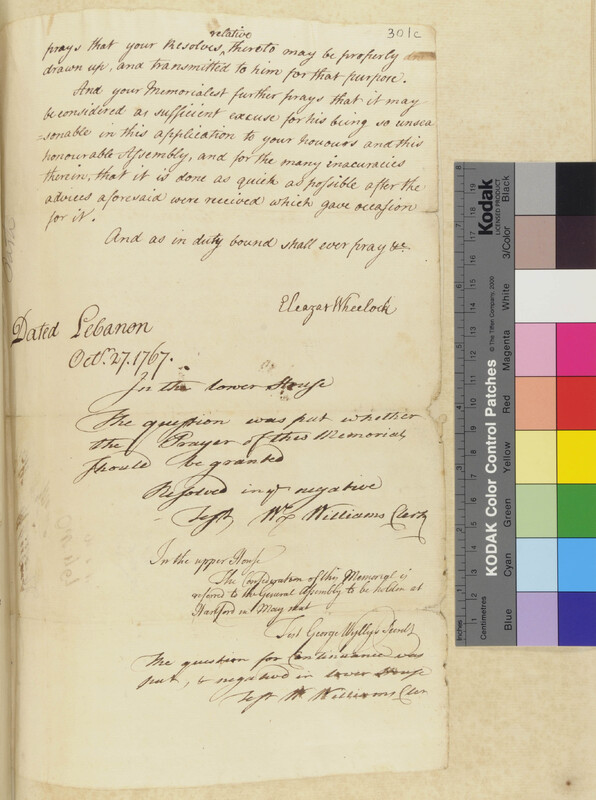 301c
relative
prays that your Resolves, thereto may be properly
drawn up, and transmitted to him for that purpose.
And your Memorialest further prays that it may
be considered as sufficient excuse for his being so unsea
=sonable in this application to your honours and this
honourable Assembly, and for the many inacuracies
therein, that it is done as quick as possible after the
advices aforesaid were received which gave occasion
for it.
And as in duty bound shall ever pray &c.
Eleazar Wheelock
Dated Lebanon
Octr. 27. 1767.
In the lower House
The question was put whether
the Prayer of this Memorial
should be granted
Resolved in ye negative
Test Wm Williams Clerk
In the upper House
The Consideration of this Memorial is
referred to the General Assembly to be holden at
Hartford in May next
Test George Wyllys Secrety
The question for Continuance was
put, & negatived in lower House
Test Wm Williams Cler
Kodak
LICENSED PRODUCT
Black
3/Color
White
Magenta
Red
Yellow
Green
Cyan
Blue
© The Tiffen Company, 2000
KODAK Color Control Patches
Inches
Centimetres
1 2 3 4 5 6 7 8 9 10 11 12 13 14 15 16 17 18 19